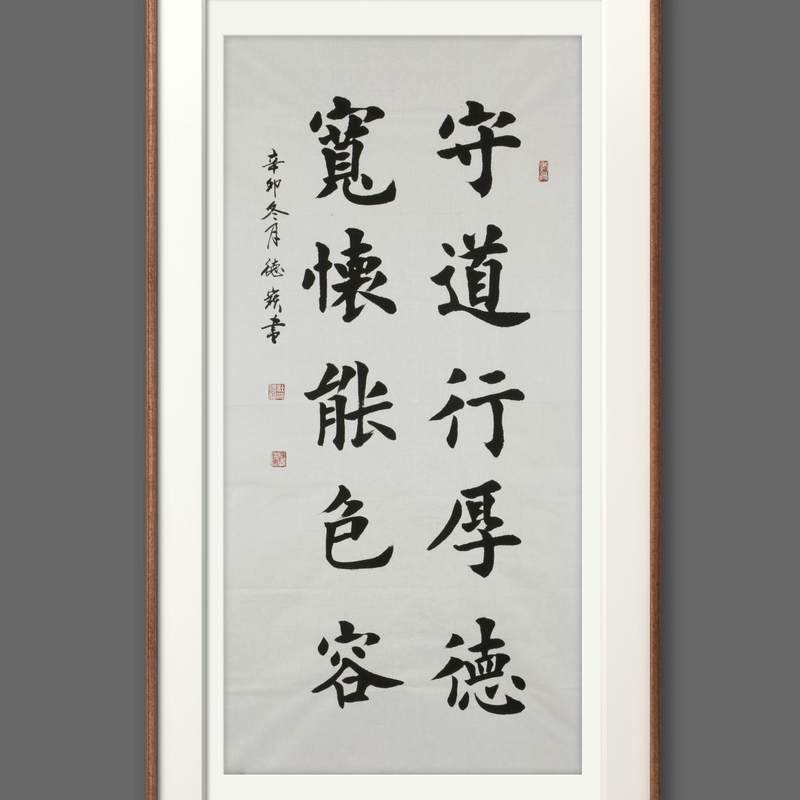 守道行厚德
寬懷能色容
辛卯冬月德嶷書